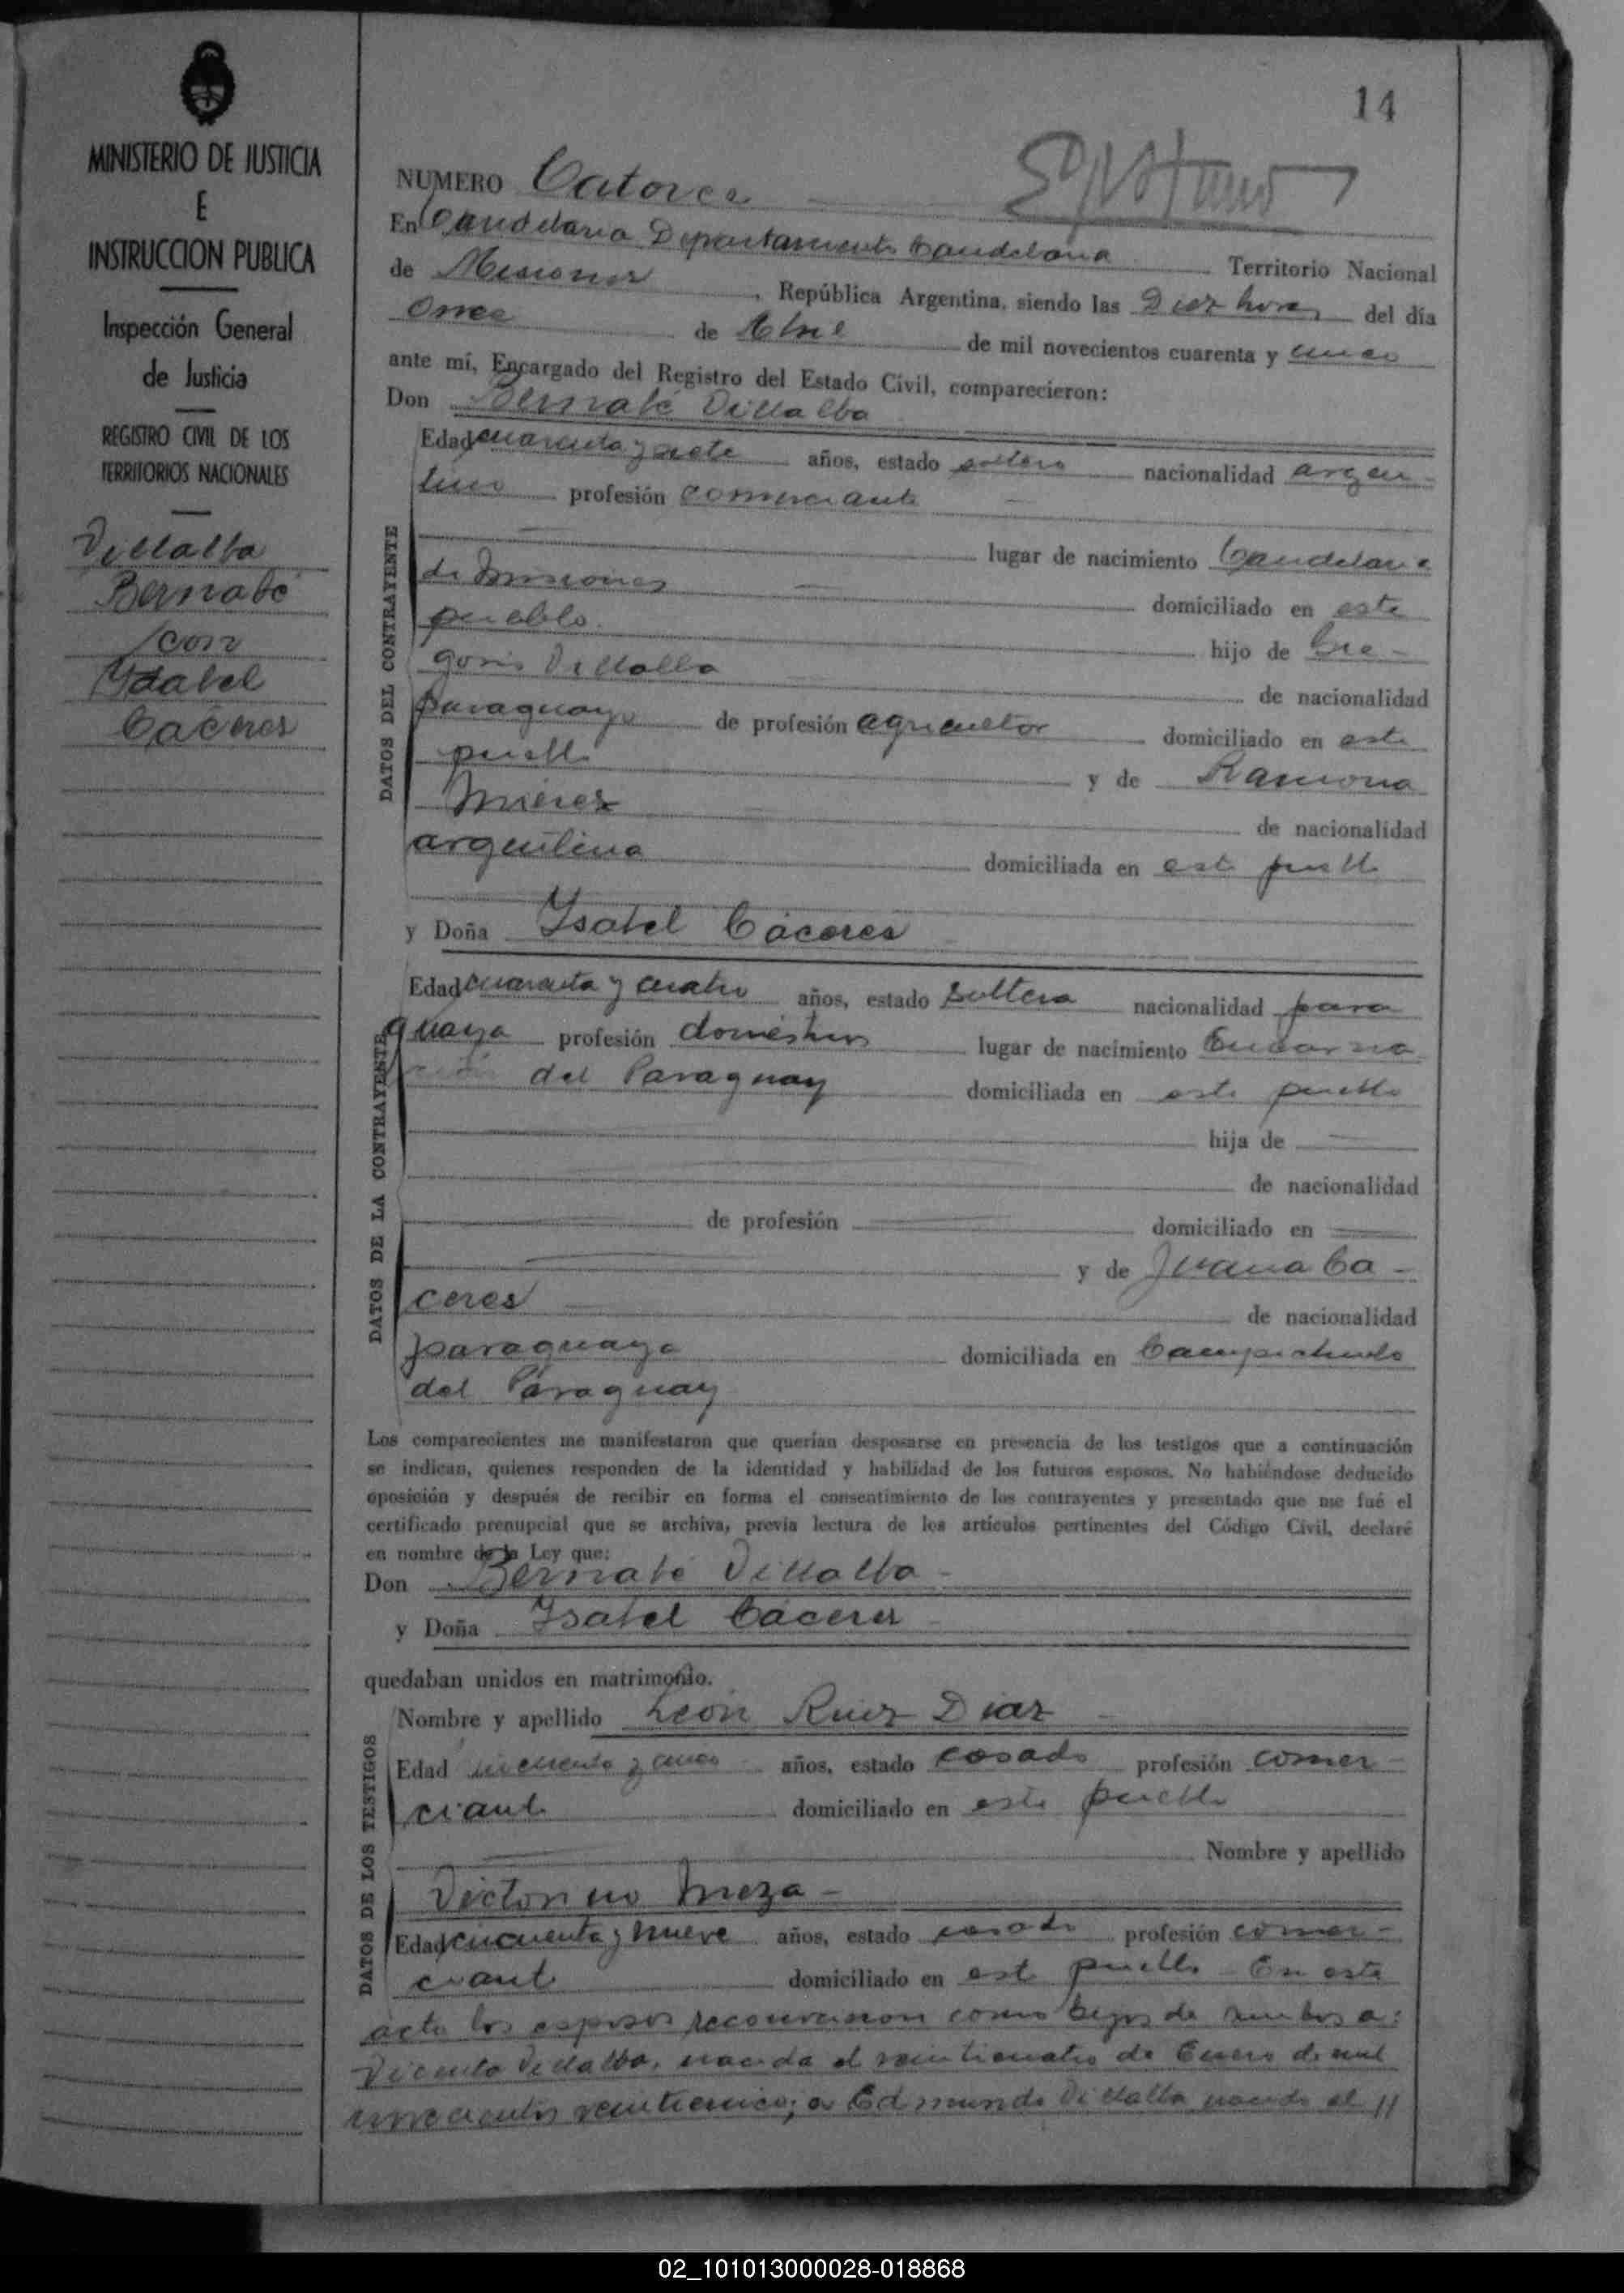 14
MINISTERIO DE JUSTICIA
E
INSTRUCCION PUBLICA
Inspección General
de Justicia
REGISTRO CIVIL DE LOS
TERRITORIOS NACIONALES
Villalba
Bernabé
con
Ysabel
Cáceres
NUMERO Catorce
En Candelaria Departamento Candelaria Territorio Nacional
de Misiones, República Argentina, siendo las Diez horas del día
Once de Abril de mil novecientos cuarenta y cinco
ante mí, Encargado del Registro del Estado Civil, comparecieron:
Don Bernabé Villalba
DATOS DEL CONTRAYENTE
Edad cuarenta y siete años, estado soltero nacionalidad argen-
tino profesión comerciante
lugar de nacimiento Candelaria
de Misiones domiciliado en este
pueblo. hijo de Gre-
gorio Villalba de nacionalidad
paraguayo de profesión agricultor domiciliado en este
pueblo y de Ramona
Mierez de nacionalidad
argentina domiciliada en este pueblo
y Doña Ysabel Cáceres
DATOS DE LA CONTRAYENTE
Edad cuarenta y cuatro años, estado soltera nacionalidad para
guaya profesión domésticos lugar de nacimiento Encarna
ción del Paraguay domiciliada en este pueblo
hija de
de nacionalidad
de profesión domiciliado en
y de Juana Ca-
ceres de nacionalidad
paraguaya domiciliada en Campichuelo
del Paraguay
Los comparecientes me manifestaron que querían desposarse en presencia de los testigos que a continuación
se indican, quienes responden de la identidad y habilidad de los futuros esposos. No habiéndose deducido
oposición y después de recibir en forma el consentimiento de los contrayentes y presentado que me fué el
certificado prenupcial que se archiva, previa lectura de los artículos pertinentes del Código Civil, declaré
en nombre de la Ley que:
Don Bernabé Villalba
y Doña Ysabel Cáceres
quedaban unidos en matrimonio.
DATOS DE LOS TESTIGOS
Nombre y apellido León Ruiz Diaz
Edad cincuenta y cinco años, estado casado profesión comer-
ciante domiciliado en este pueblo
Nombre y apellido
Victorino Meza
Edad cincuenta y nueve años, estado casado profesión comer-
ciante domiciliado en este pueblo En este
acto los esposos reconocieron como hijos de ambos a:
Vicenta Villalba, nacida el veinticuatro de Enero de mil
novecientos veinticinco; a Edmundo Villalba nacido el 11
02_101013000028-018868